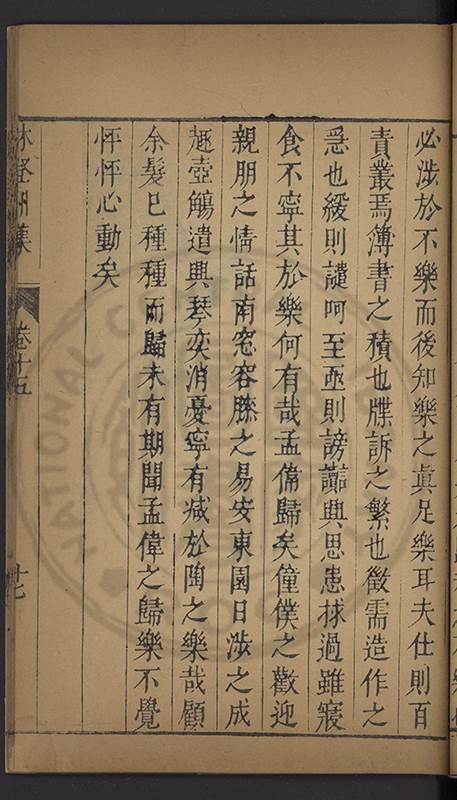 必涉於不樂而後知樂之真足樂耳夫仕則百
責叢焉簿書之積也牒訴之繁也徵需造作之
急也緩則譴呵至亟則謗讟興思患捄過雖寢
食不寧其於樂何有哉孟偉歸矣僮僕之歡迎
親朋之情話南窓容膝之易安東園日涉之成
趣壺觴遣興琴奕消憂寧有減於陶之樂哉顧
余髮已種種而歸未有期聞孟偉之歸樂不覺
怦怦心動矣
林登州集
卷十五
十七